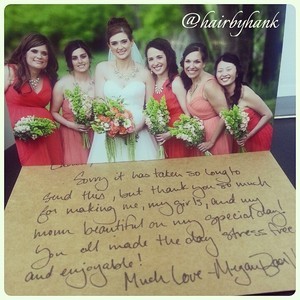 @hairbyhank
Sorry it has taken so long to
send this, but thank you so much
for making me, my girls, and my
mom beautiful on my special day!
You all made the day stress free
and enjoyable!
Much Love - Megan